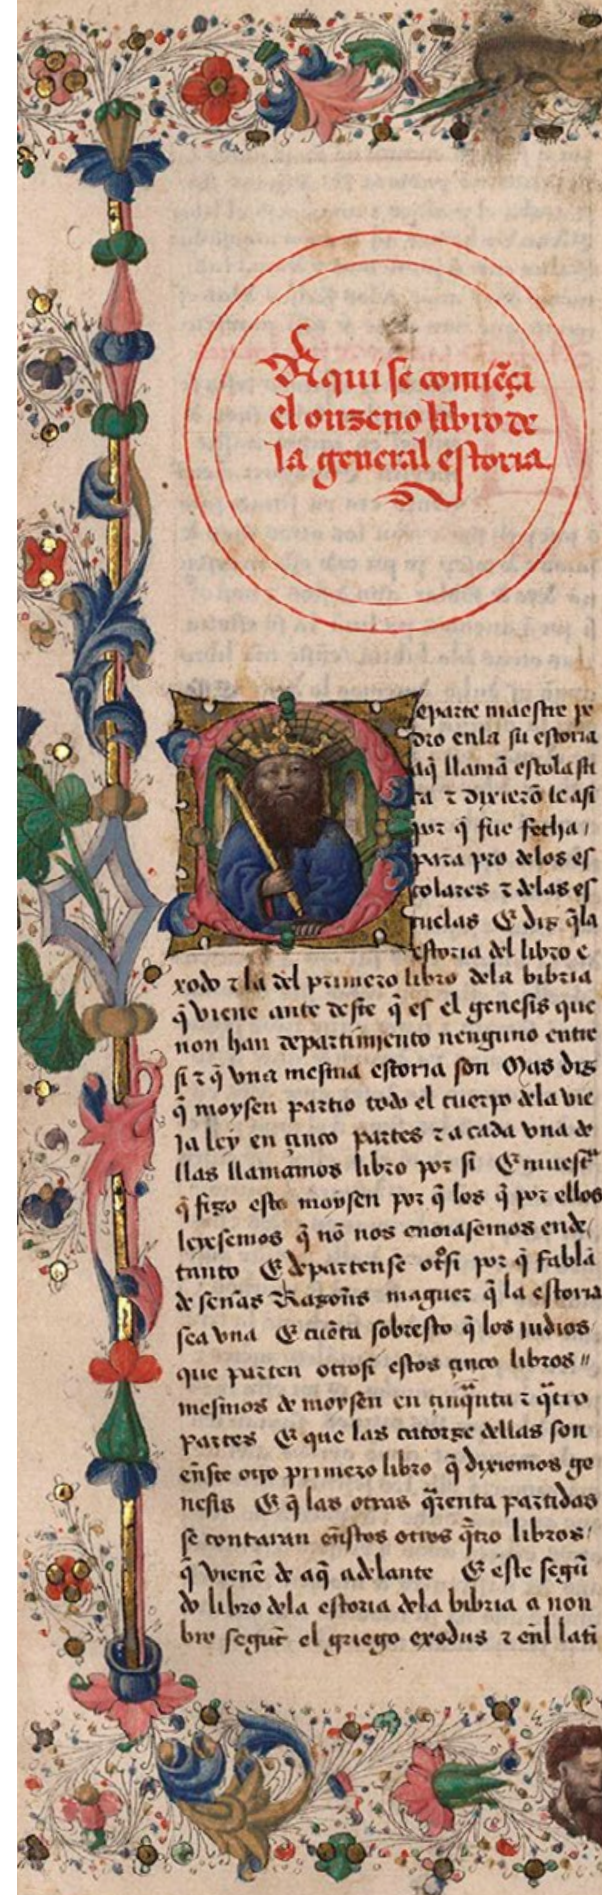 Aqui se comiẽça
el onzeno libro de
la general estoria
Departe maestre pe
dro enla su estoria
aq̃ llamã escolasti
ca ⁊ dixierõ le asi
por q̃ fue fecha /
para pro delos es
colares ⁊ delas es
cuelas E diz q̃la
estoria del libro e
xodo ⁊ la del primero libro dela bibria
q̃ viene ante deste q̃ es el genesis que
non han departimiento nenguno entre
si ⁊ q̃ vna mesma estoria son Mas diz
q̃ moysen partio todo el cuerpo dela vie
ja ley en çinco partes ⁊ a cada vna de
llas llamamos libro por si E muest̃
q̃ fizo esto moysen por q̃ los q̃ por ellos
leyesemos q̃ nõ nos enoiasemos ende /
tanto E departense ot̃si por q̃ fablã
de señas Razoñs maguer q̃ la estoria
sea vna E cuẽta sobresto q̃ los judios
que parten otrosi estos çinco libros //
mesmos de moysen en çinq̃nta ⁊ q̃tro
partes E que las catorze dellas son
eñste otro primero libro q̃ diximos ge
nesis E q̃ las otras q̃renta partidas
se contaran eñstos otros q̃tro libros /
q̃ vienẽ de aq̃ adelante E este segũ
do libro dela estoria dela bibria a non
bre segũt el griego exodus ⁊ eñl lati